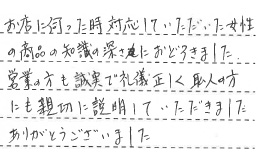 お店に伺った時対応していただいた女性
の商品の知識の深さにおどろきました
営業の方も誠実で礼儀正しく職人の方
にも親切に説明していただきました
ありがとうございました